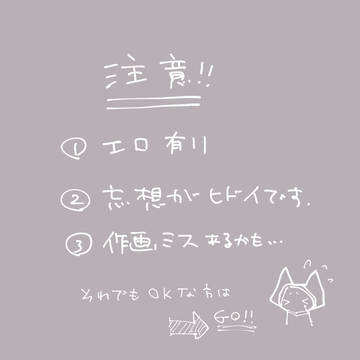 注意!!
① エロ有リ
② 忘想がヒドイです.
③ 作画ミスあるかも…
それでもOKな方は
GO!!